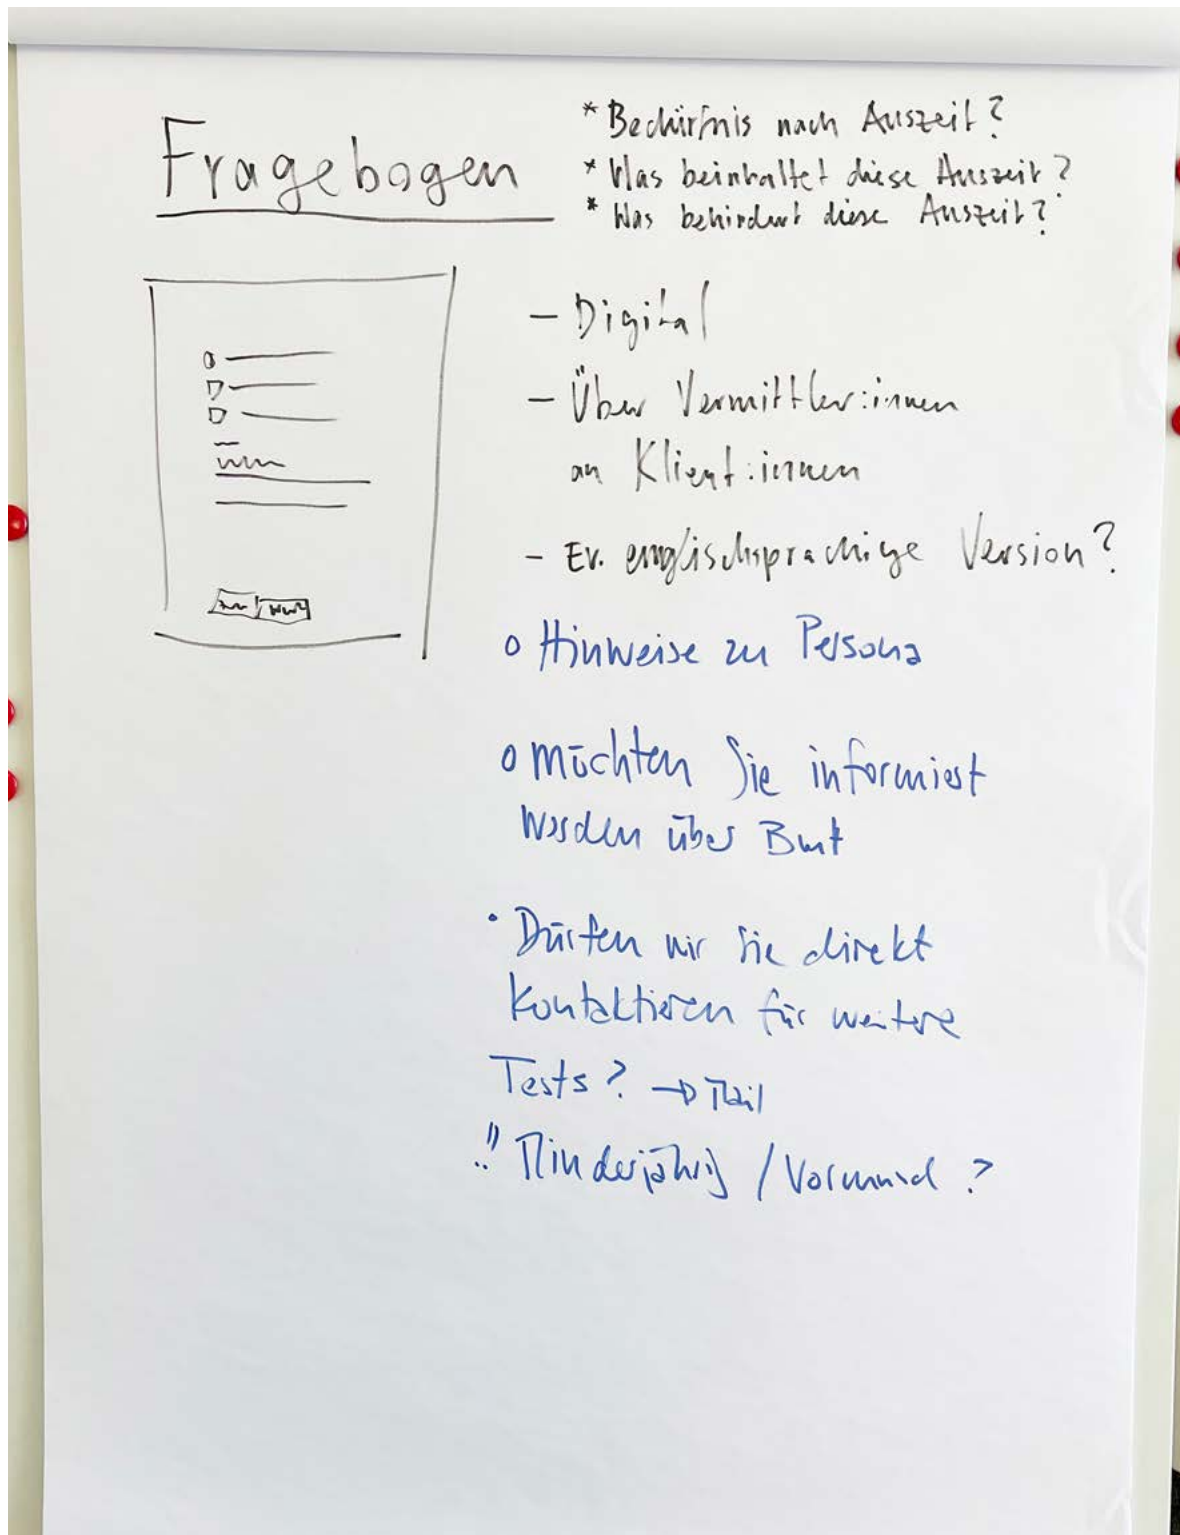 Fragebogen
* Bedürfnis nach Auszeit?
* Was beinhaltet diese Auszeit?
* Was behindert diese Auszeit?
– Digital
– Über Vermittler:innen
an Klient:innen
– Ev. englischsprachige Version?
o Hinweise zu Persona
o Möchten Sie informiert
werden über
• Dürfen wir Sie direkt
kontaktieren für weitere
Tests? → Mail
!! Minderjährig / Vormund ?